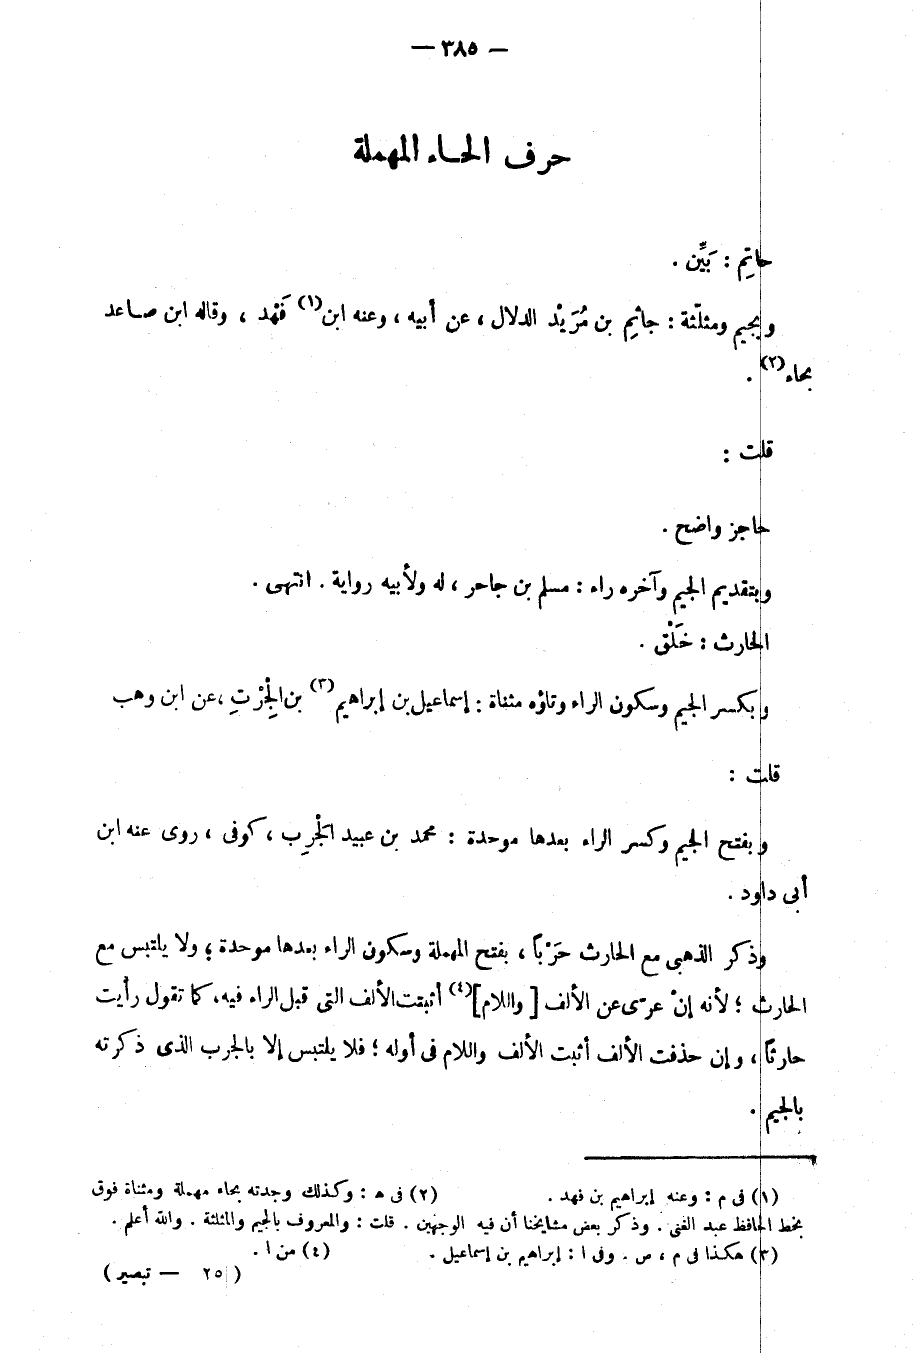 — ٣٨٥ —
حرف الحاء المهملة
حاتِم : بَيِّن .
وبجيم ومثلّثة : جاثِم بن مُرَيْد الدلال ، عن أبيه ، وعنه ابن(١) فَهْد ، وقاله ابن صاعد
بحاء(٢) .
قلت :
حاجز واضح .
وبتقديم الجيم وآخره راء : مسلم بن جاحر ، له ولأبيه رواية . انتهى .
الحارث : خَلْق .
وبكسر الجيم وسكون الراء وتاؤه مثناة : إسماعيل بن إبراهيم(٣) بن الجِرْتِ ، عن ابن وهب
قلت :
وبفتح الجيم وكسر الراء بعدها موحدة : محمد بن عبيد الجْرِب ، كوفى ، روى عنه ابن
أبى داود .
وذكر الذهبى مع الحارث حَرْباً ، بفتح المهملة وسكون الراء بعدها موحدة ؛ ولا يلتبس مع
الحارث ؛ لأنه إنْ عرّى عن الألف [ واللام ](٤) أثبتت الألف التى قبل الراء فيه، كما تقول رأيت
حارثاً ، وإن حذفت الألف أثبت الألف واللام فى أوله ؛ فلا يلتبس إلا بالجرب الذى ذكرته
بالجيم .
(١) فى م : وعنه إبراهيم بن فهد . (٢) فى ه : وكذلك وجدته بحاء مهملة ومثناة فوق
بخط الحافظ عبد الغنى . وذكر بعض مشايخنا أن فيه الوجهين . قلت : والمعروف بالجيم والمثلثة . والله أعلم .
(٣) هكذا فى م ، س . وفى ا : إبراهيم بن إسماعيل . (٤) من ا .
( ٢٥ — تبصير )